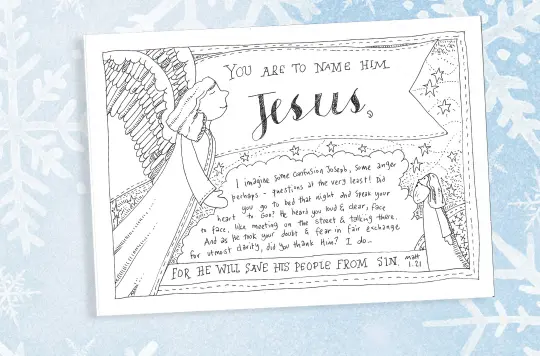 YOU ARE TO NAME HIM
Jesus,
I imagine some confusion Joseph, some anger
perhaps - questions at the very least! Did
you go to bed that night and speak your
heart to God? He heard you loud & clear, face
to face, like meeting on the street & talking there.
And as he took your doubt & fear in fair exchange
for utmost clarity, did you thank Him? I do...
FOR HE WILL SAVE HIS PEOPLE FROM SIN. matt
1.21